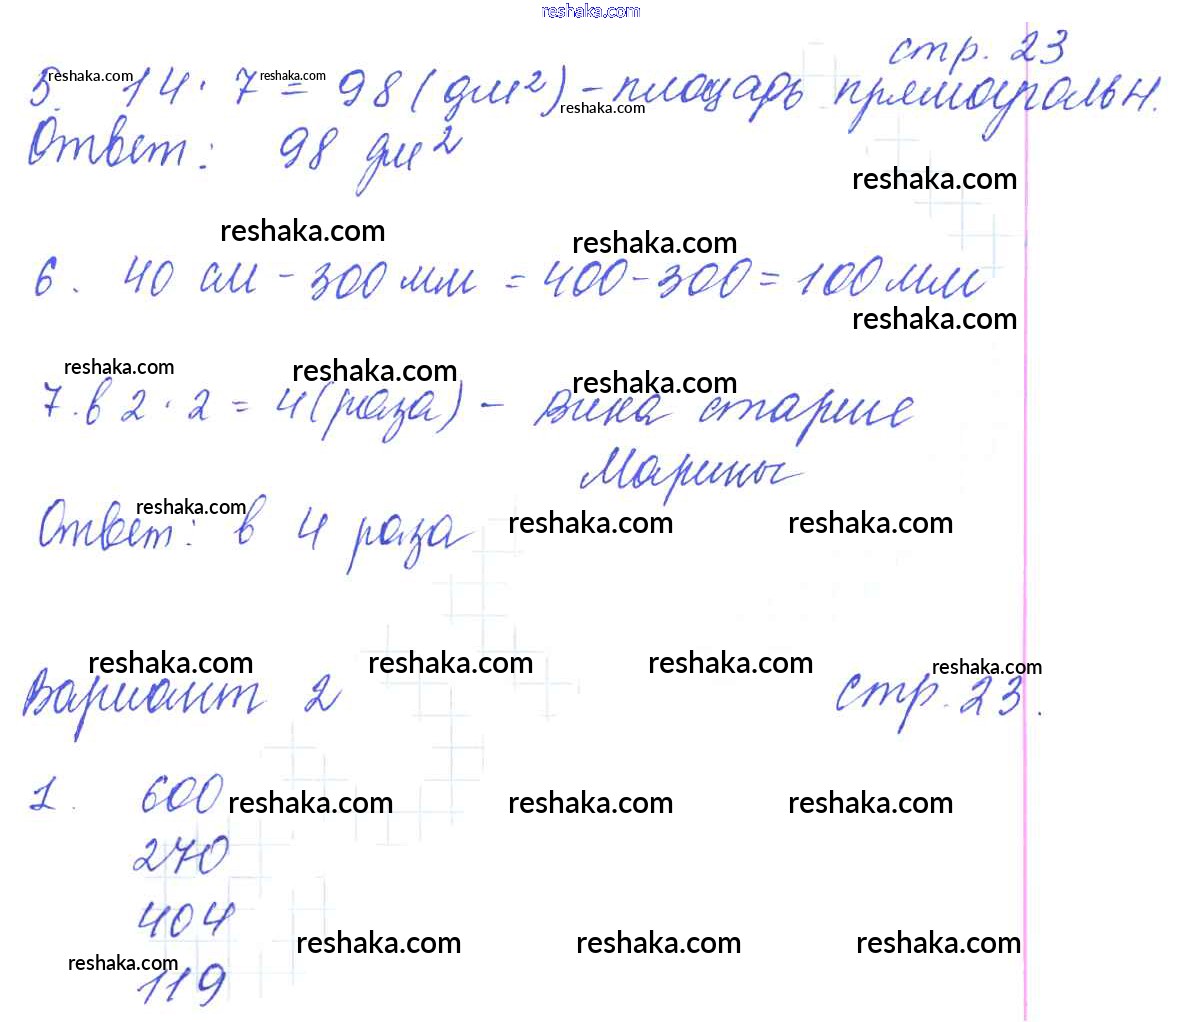 reshaka.com
стр. 23
5. 14 · 7 = 98 (дм²) - площадь прямоугольн.
Ответ: 98 дм²
6. 40 см - 300 мм = 400 - 300 = 100 мм
7. в 2 · 2 = 4 (раза) - Вика старше
Марины
Ответ: в 4 раза
Вариант 2 стр. 23.
1. 600
270
404
119
reshaka.com reshaka.com reshaka.com
reshaka.com
reshaka.com reshaka.com
reshaka.com
reshaka.com reshaka.com reshaka.com
reshaka.com reshaka.com reshaka.com
reshaka.com reshaka.com reshaka.com reshaka.com
reshaka.com reshaka.com reshaka.com
reshaka.com reshaka.com reshaka.com reshaka.com